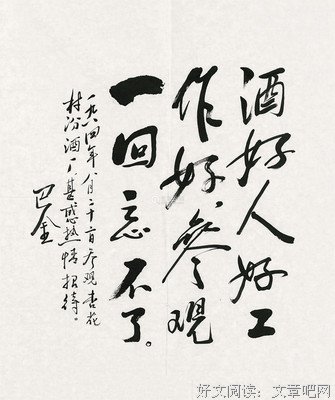 酒好人好工
作好,参观
一回忘不了。
一九八四年八月二十日参观杏花
村汾酒厂,甚感热情招待。
巴金
好文阅读: 文章吧网